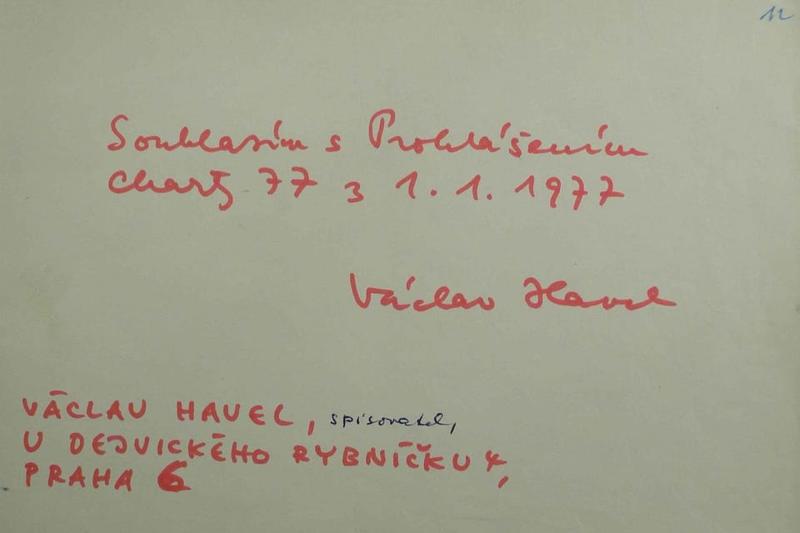 12
Souhlasím s Prohlášením
Charty 77 z 1. 1. 1977
Václav Havel
VÁCLAV HAVEL, spisovatel,
U DEJVICKÉHO RYBNÍČKU 4,
PRAHA 6